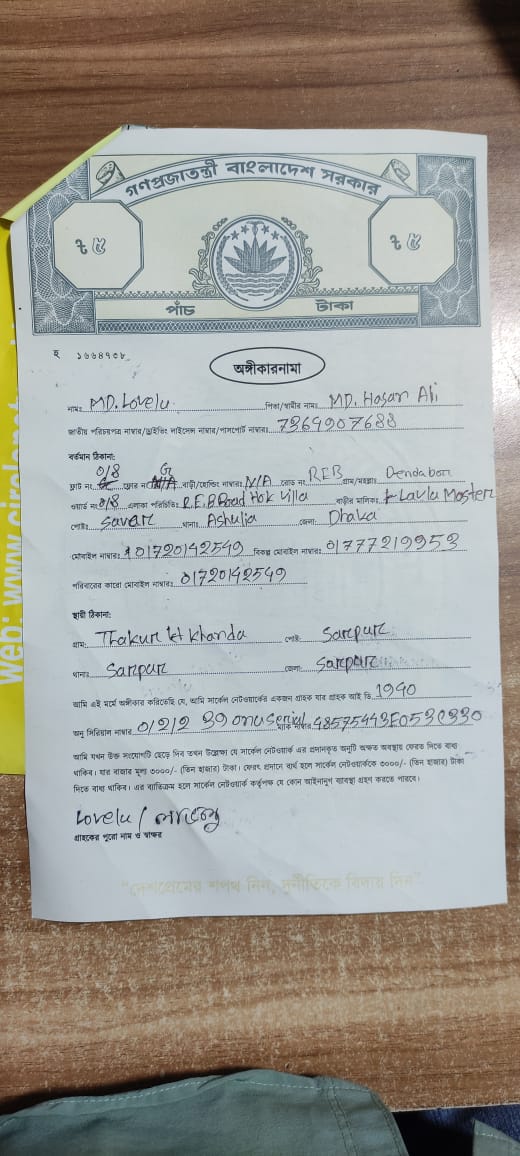 গণপ্রজাতন্ত্রী বাংলাদেশ সরকার
৳ ৫ ৳ ৫
পাঁচ টাকা
হ ১৬৬৪৭৩৮
অঙ্গীকারনামা
নামঃ MD. Lovelu পিতা/স্বামীর নামঃ MD. Hasan Ali
জাতীয় পরিচয়পত্র নাম্বার/ড্রাইভিং লাইসেন্স নাম্বার/পাসপোর্ট নাম্বারঃ 7364907688
বর্তমান ঠিকানা:
0/8 G
ফ্লাট নং ফ্লোর নং N/A বাড়ী/হোল্ডিং নাম্বারঃ N/A রোড নং REB গ্রাম/মহল্লাঃ Dendabor
ওয়ার্ড নং 0/8 এলাকা পরিচিতিঃ R.E.B Road Hok Villa বাড়ীর মালিকঃ Lavlu Master
পোষ্টঃ Savar থানাঃ Ashulia জেলা: Dhaka
মোবাইল নাম্বারঃ 01720142549 বিকল্প মোবাইল নাম্বারঃ 01777219953
পরিবারের কারো মোবাইল নাম্বারঃ 01720142549
স্থায়ী ঠিকানা:
গ্রাম: Thakur khanda পোষ্ট: Sarpur
থানাঃ Sarpur জেলা: Sarpur
আমি এই মর্মে অঙ্গীকার করিতেছি যে, আমি সার্কেল নেটওয়ার্কের একজন গ্রাহক যার গ্রাহক আই ডি 1940
অনু সিরিয়াল নাম্বার 0/2/2 39 onu serial নাম্বার 48575443E0530330
আমি যখন উক্ত সংযোগটি ছেড়ে দিব তখন উল্লেখ্য যে সার্কেল নেটওয়ার্ক এর প্রদানকৃত অনুটি অক্ষত অবস্থায় ফেরত দিতে বাধ্য
থাকিব। যার বাজার মূল্য ৩০০০/- (তিন হাজার) টাকা। ফেরৎ প্রদানে ব্যর্থ হলে সার্কেল নেটওয়ার্ককে ৩০০০/- (তিন হাজার) টাকা
দিতে বাধ্য থাকিব। এর ব্যতিক্রম হলে সার্কেল নেটওয়ার্ক কর্তৃপক্ষ যে কোন আইনানুগ ব্যবস্থা গ্রহণ করতে পারবে।
Lovelu / লাভলু
গ্রাহকের পুরো নাম ও স্বাক্ষর
"দেশপ্রেমের শপথ নিন, দুর্নীতিকে বিদায় দিন"
web: www.circlenet